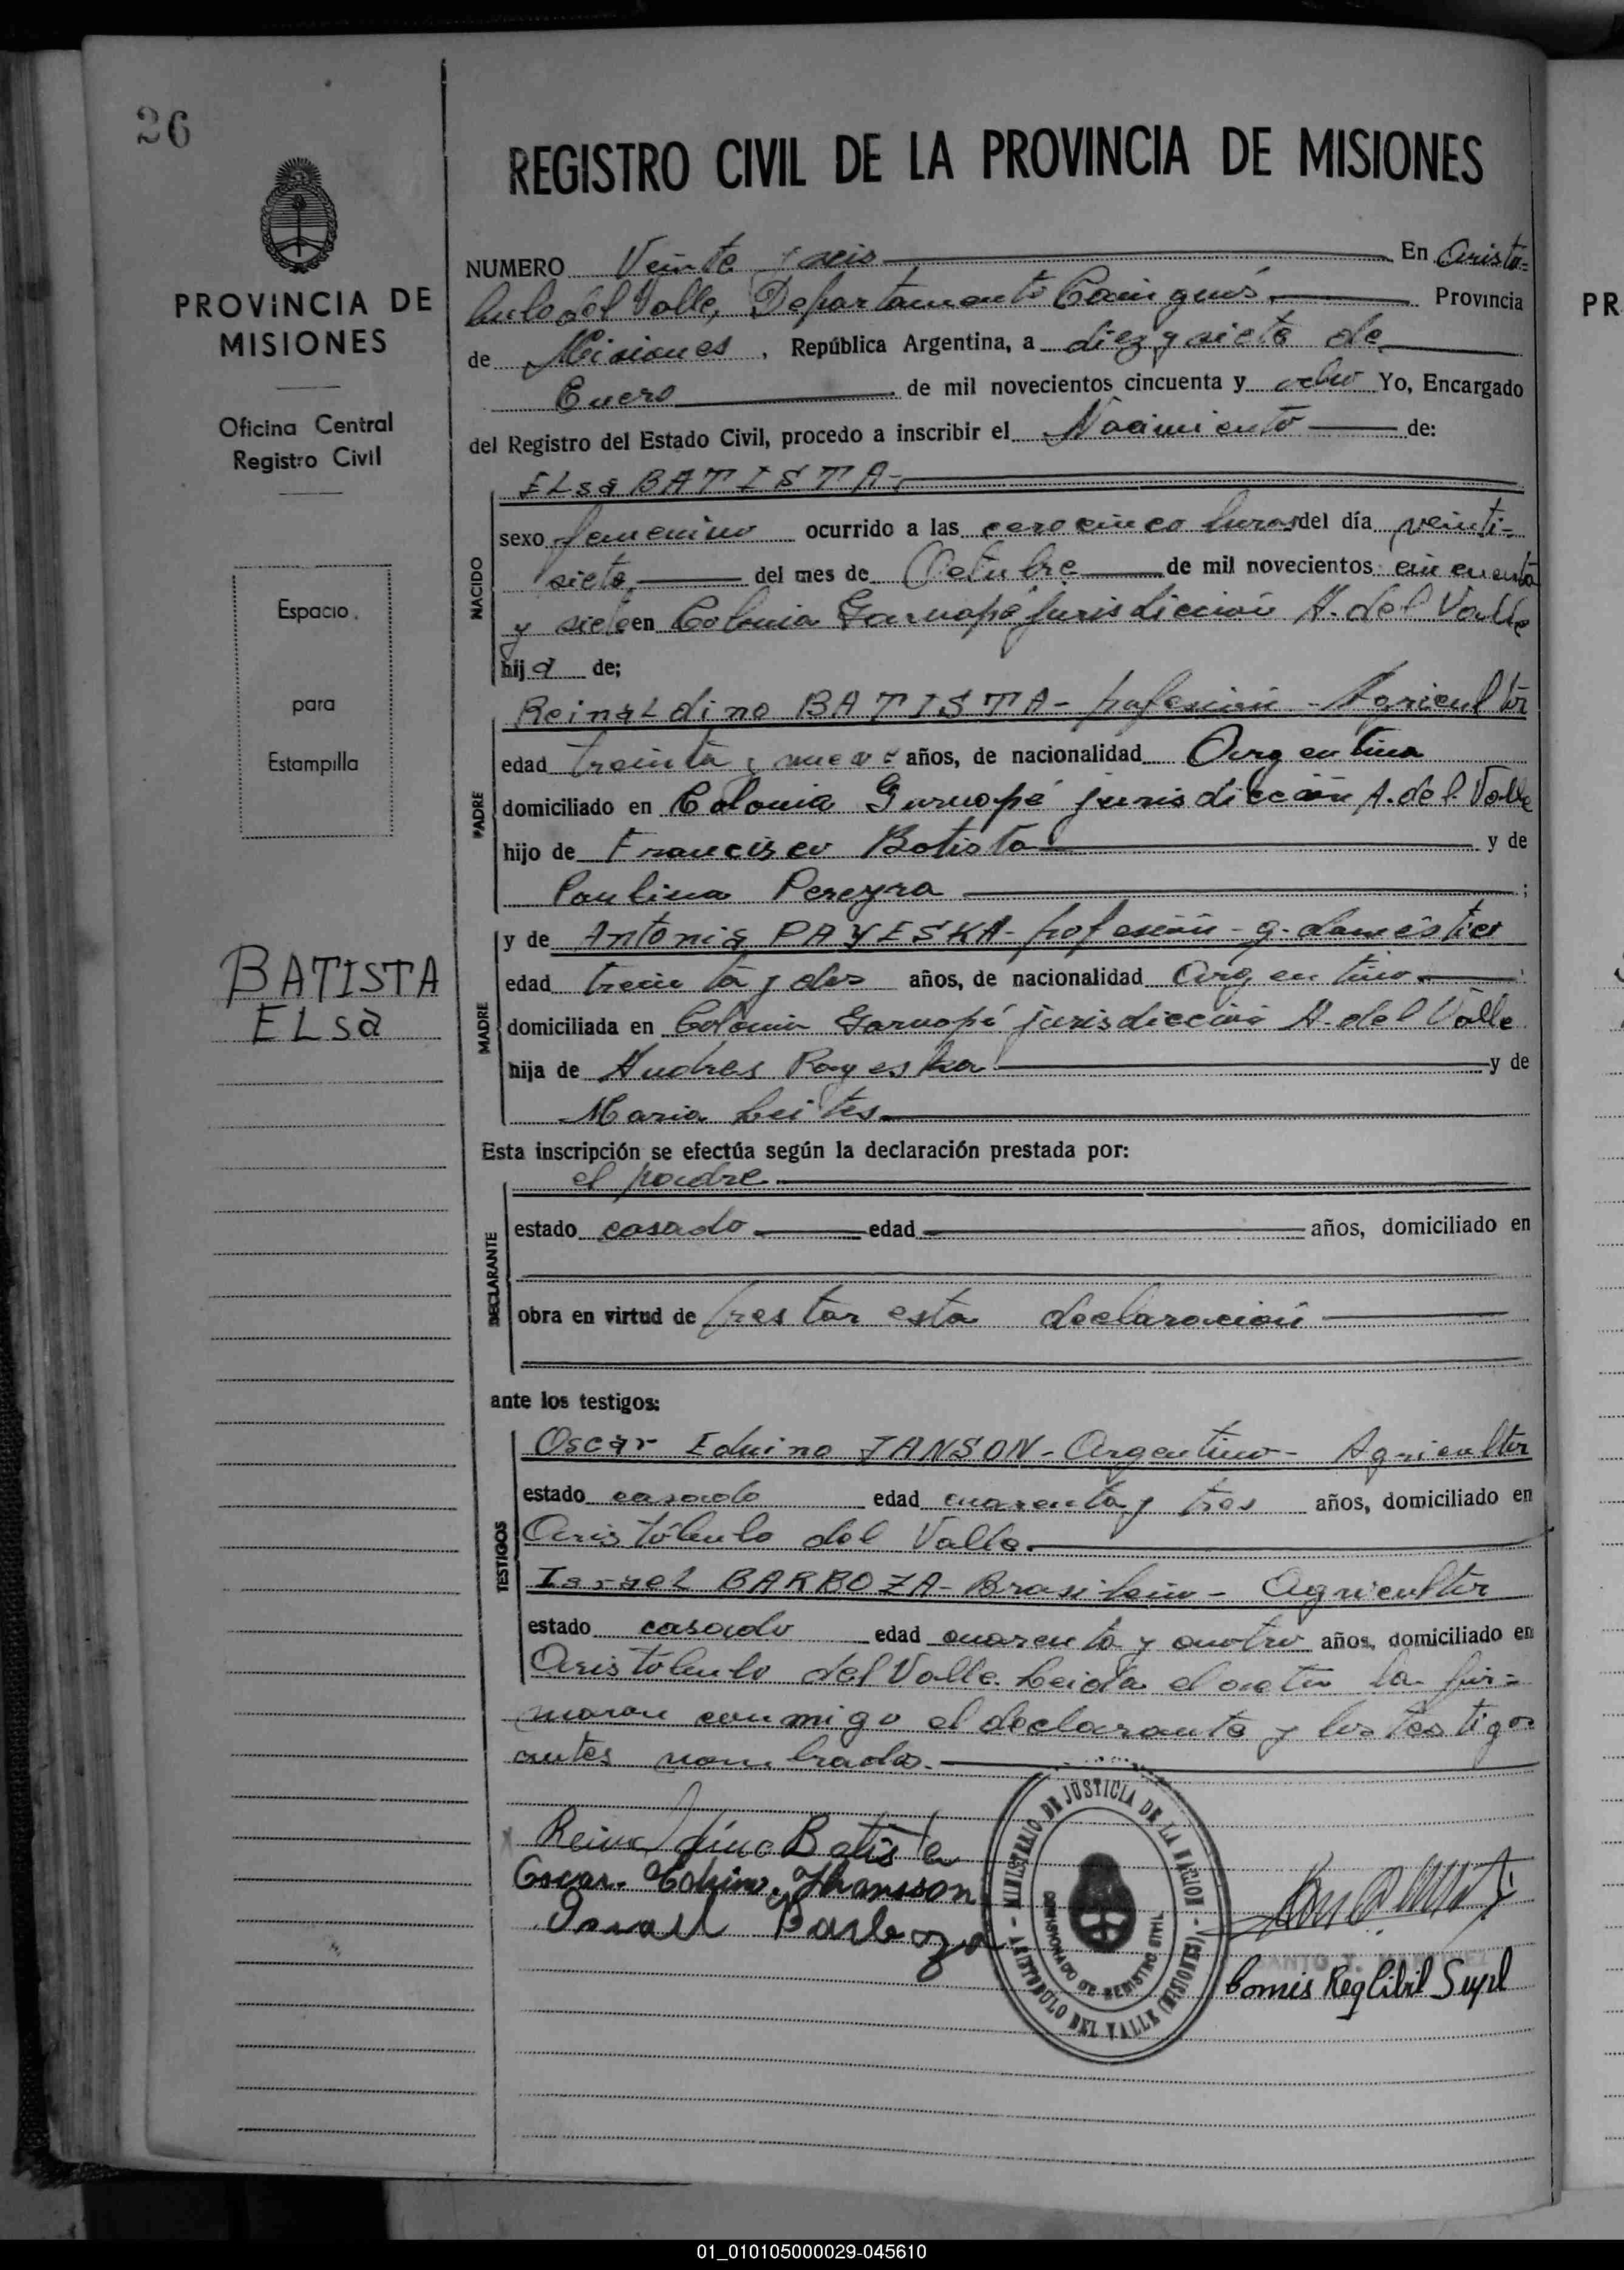 26
PROVINCIA DE
MISIONES
Oficina Central
Registro Civil
Espacio
para
Estampilla
BATISTA
ELsa
REGISTRO CIVIL DE LA PROVINCIA DE MISIONES
NUMERO Veinte y seis En Aristó-
bulo del Valle, Departamento Cainguás Provincia
de Misiones, República Argentina, a diez y siete de
Enero de mil novecientos cincuenta y ocho Yo, Encargado
del Registro del Estado Civil, procedo a inscribir el Nacimiento de:
ELsa BATISTA-
NACIDO
sexo femenino ocurrido a las cero cinco horas del día veinti-
siete del mes de Octubre de mil novecientos cincuenta
y siete en Colonia Garuapé jurisdicción A. del Valle
hija de;
PADRE
ReinaLdino BATISTA- profesión - Agricultor
edad treinta y nueve años, de nacionalidad Argentina
domiciliado en Colonia Garuapé jurisdicción A. del Valle
hijo de Francisco Batista y de
Paulina Pereyra ;
MADRE
y de Antonia PAYESKA- profesión - q. doméstico
edad treinta y dos años, de nacionalidad Argentino
domiciliada en Colonia Garuapé jurisdicción A. del Valle
hija de Andres Payeska y de
Maria Leites
Esta inscripción se efectúa según la declaración prestada por:
el padre
DECLARANTE
estado casado edad años, domiciliado en
obra en virtud de prestar esta declaración
ante los testigos:
TESTIGOS
Oscar Eduino JANSON- Argentino- Agricultor
estado casado edad cuarenta y tres años, domiciliado en
Aristóbulo del Valle.
IsraeL BARBOZA- Brasileño- Agricultor
estado casado edad cuarenta y cuatro años, domiciliado en
Aristóbulo del Valle. Leida el acta la fir-
maron conmigo el declarante y los testigos
antes nombrados.
Reinaldino Batista
Oscar Edvino Jhansson
Israel Barboza
MINISTERIO DE JUSTICIA DE LA NACION
COMISIONADO DE REGISTRO CIVIL
ARISTOBULO DEL VALLE (MISIONES)
Comis Reg Cibil Supl
PR
01_010105000029-045610